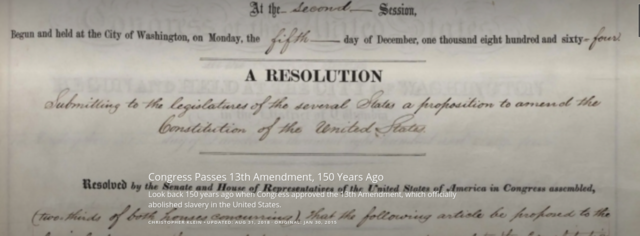 At the second Session,
Begun and held at the City of Washington, on Monday, the fifth day of December, one thousand eight hundred and sixty-four
A RESOLUTION
Submitting to the legislatures of the several States a proposition to amend the
Constitution of the United States.
Congress Passes 13th Amendment, 150 Years Ago
Resolved by the Senate and House of Representatives of the United States of America in Congress assembled,
Look back 150 years ago when Congress approved the 13th Amendment, which officially
abolished slavery in the United States.
(two-thirds of both houses concurring), That the following article be proposed to the
CHRISTOPHER KLEIN · UPDATED: AUG 31, 2018 · ORIGINAL: JAN 30, 2015